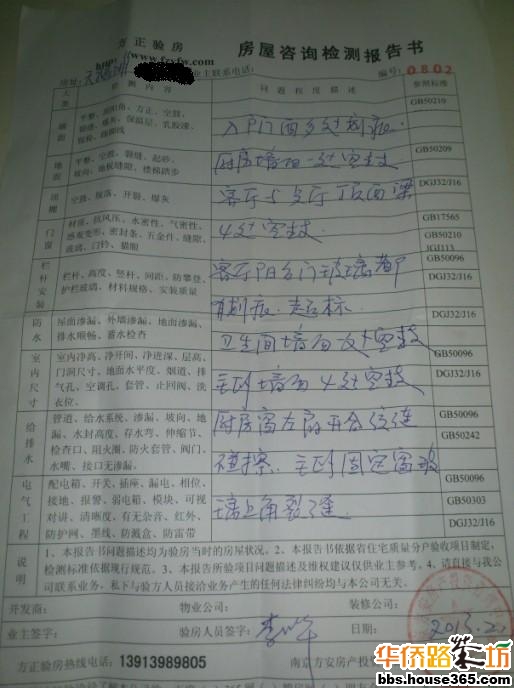 方正验房
房屋咨询检测报告书
www.fzyfw.com
业主联系电话：
编号：0802
检测内容
问题程度描述
参照标准
GB50210
入户门面多处划痕.
GB50209
厨房墙面一处空鼓
空鼓、脱落、开裂、爆灰
DGJ32/J16
客厅与点厅顶面梁
门窗
材质、抗风压、水密性、气密性、
GB17565
4处空鼓.
GB50210
门铃、猫眼
JGJ113
栏杆安装
栏杆、高度、竖杆、间距、防攀登、
护栏玻璃、材料规格、安装质量
GB50096
DGJ32/J16
客厅阳台门玻璃都
有划痕.超标.
防水
屋面渗漏、外墙渗漏、地面渗漏、
排水顺畅、蓄水检查
DGJ32/J16
卫生间墙面及大空鼓
室内尺寸
室内净高、净开间、净进深、层高、
门洞尺寸、地面水平度、烟道、排
气孔、空调孔、套管、止回阀、洗
衣位、
GB50096
DGJ32/J16
主卧墙面4处空鼓
给排水
管道、给水系统、渗漏、坡向、地
漏、水封高度、存水弯、伸缩节、
检查口、阻火圈、防火套管、阀门、
水嘴、接口无渗漏、
GB50096
GB50242
厨房窗左扇开合
碰擦.主卧固定窗玻
电气工程
配电箱、开关、插座、漏电、相位、
接地、报警、弱电箱、模块、可视
对讲、清晰度、有无杂音、红外、
防护网、墨线、防溅盒、防雷带
GB50096
GB50303
DGJ32/J16
璃上角裂缝.
说明
1、本报告书问题描述均为验房当时的房屋状况。2、本报告书依据省住宅质量分户验收项目制定，
检测标准依据现行规范。3、本报告所验项目描述及维权建议仅供业主参考。4、请直接与我公
司联系业务，私下与验方人员接洽业务产生的任何法律纠纷均与本公司无关。
开发商：
物业公司：
装修公司：
业主签字：
验房人员签字：
日期：
2013.2.
方正验房热线电话：13913989805
南京方安房产投
华侨路茶坊
bbs.house365.com